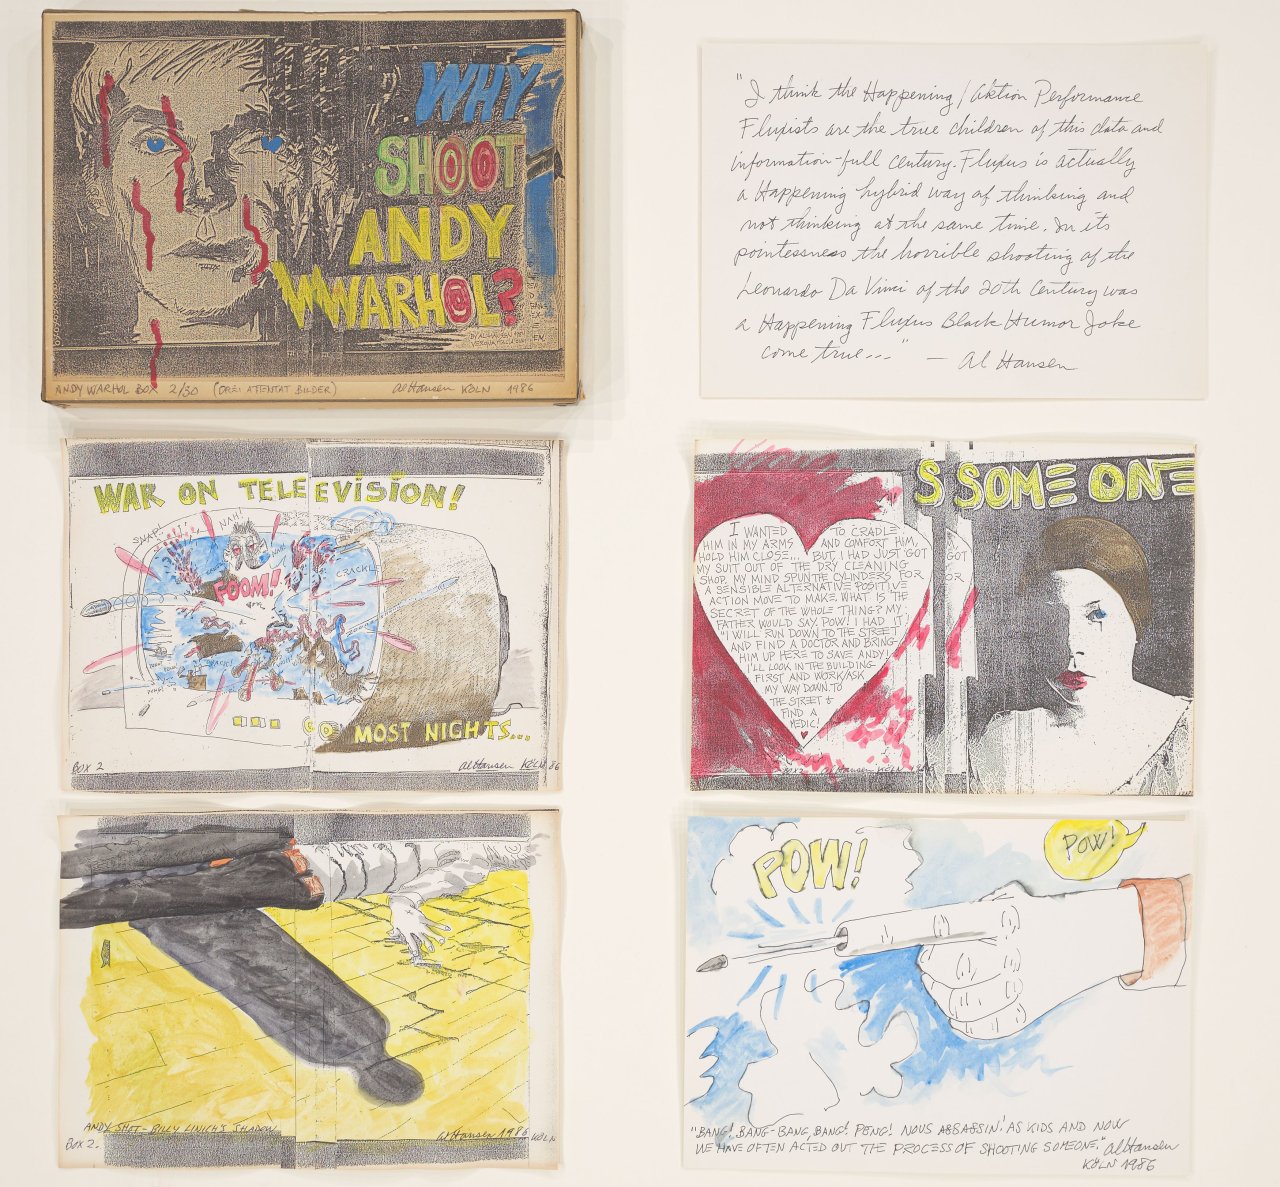 WHY
SHOOT
ANDY
WARHOL?
ANDY WARHOL BOX 2/30 (DREI ATTENTAT BILDER) Al Hansen KÖLN 1986
"I think the Happening/Aktion Performance
Fluxists are the true children of this data and
information-full century. Fluxus is actually
a Happening hybrid way of thinking and
not thinking at the same time. In its
pointessness the horrible shooting of the
Leonardo Da Vinci of the 20th Century was
a Happening Fluxus Black Humor Joke
come true..." — Al Hansen
WAR ON TELEEVISION!
SNAP!
NAH!
FOOM!
CRACKLE
MOST NIGHTS...
BOX 2
Al Hansen KÖLN 86
S SOME ONE
I WANTED TO CRADLE
HIM IN MY ARMS AND COMFORT HIM,
HOLD HIM CLOSE... BUT I HAD JUST GOT
MY SUIT OUT OF THE DRY CLEANING
SHOP. MY MIND SPUN THE CYLINDERS FOR
A SENSIBLE ALTERNATIVE POSITIVE
ACTION MOVE TO MAKE. WHAT IS THE
SECRET OF THE WHOLE THING? MY
FATHER WOULD SAY. POW! I HAD IT!
"I WILL RUN DOWN TO THE STREET
AND FIND A DOCTOR AND BRING
HIM UP HERE TO SAVE ANDY!
I'LL LOOK IN THE BUILDING
FIRST AND WORK/ASK
MY WAY DOWN TO
THE STREET &
FIND A
MEDIC!
GOT
OR
Al Hansen KÖLN
ANDY SHOT - BILLY LINICH'S SHADOW
BOX 2.
Al Hansen 1986 KÖLN
POW!
POW!
"BANG! BANG-BANG, BANG! PENG! NOUS ASSASSIN! AS KIDS AND NOW
WE HAVE OFTEN ACTED OUT THE PROCESS OF SHOOTING SOMEONE." Al Hansen
KÖLN 1986